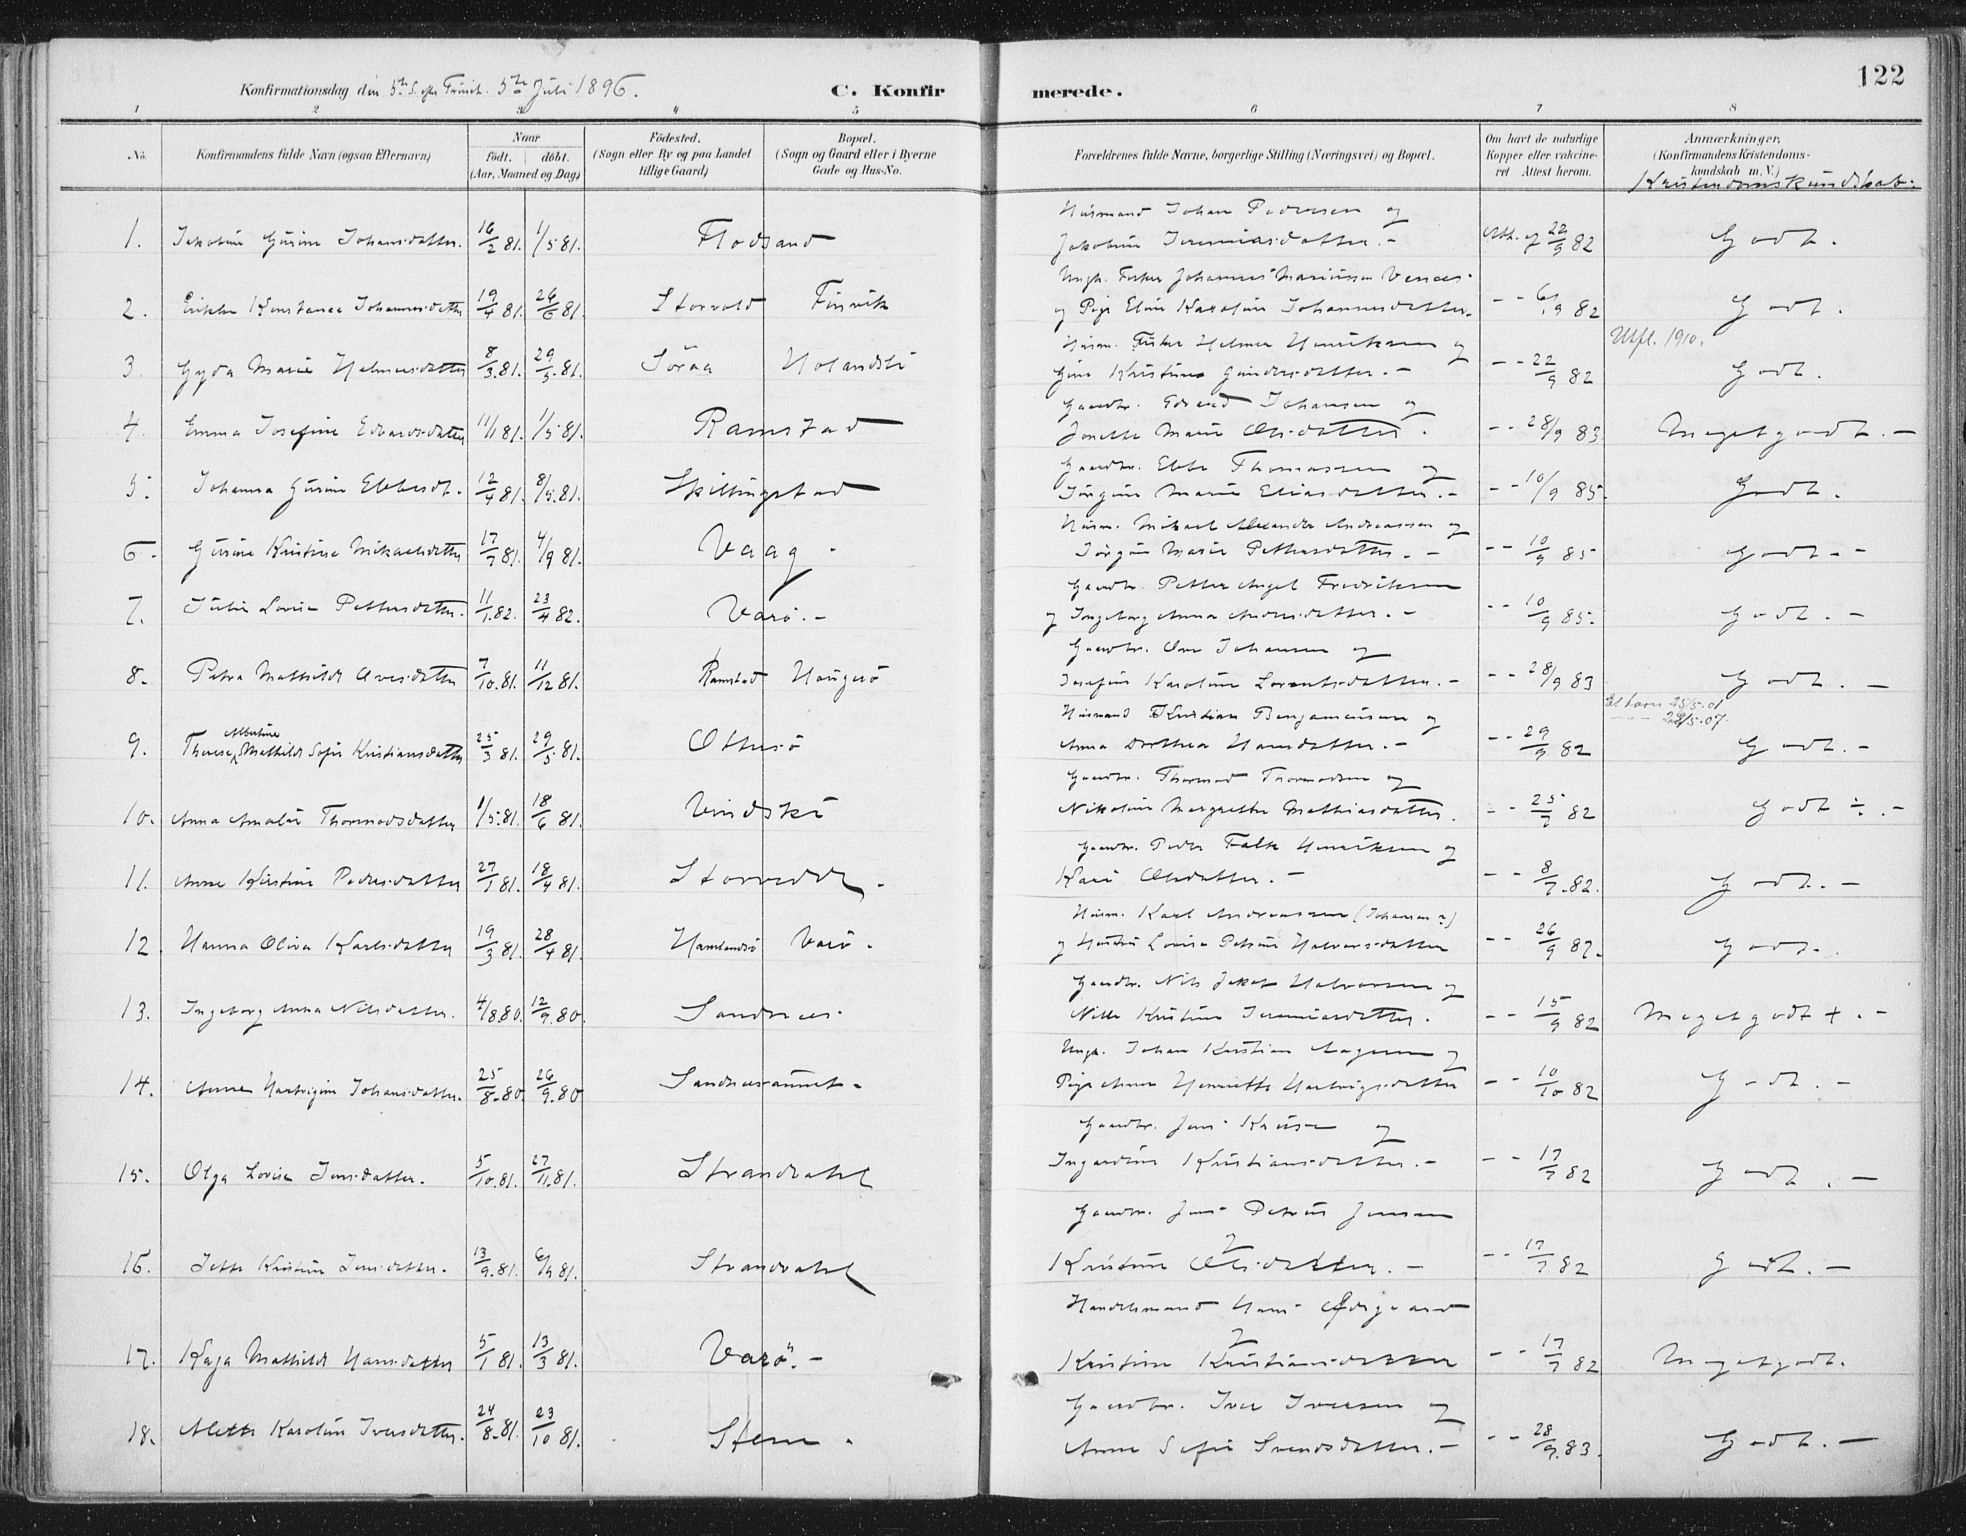 122
Konfirmationsdag den 5te S. efter Trinit. 5te Juli 1896.
C. Konfirmerede.
1 2 3 4 5 6 7 8
No.
Konfirmandens fulde Navn (ogsaa Efternavn)
Naar
født. døbt.
(Aar, Maaned og Dag)
Fødested.
(Sogn eller By og paa Landet
tillige Gaard)
Bopæl.
(Sogn og Gaard eller i Byerne
Gade og Hus-No.
Forældrenes fulde Navne, borgerlige Stilling (Næringsvei) og Bopæl.
Om havt de naturlige
Kopper eller vakcine-
ret Attest herom.
Anmærkninger,
(Konfirmandens Kristendoms-
kundskab m. V.)
Kristendomskundskab:
Husmand Johan Pedersen og
1. Jakobine Gurine Johansdatter. 16/2 81. 1/5 81. Flodsand Jakobine Jeremiasdatter.- Att. af 22/9 82 Godt.
Ungk. Fisker Johannes Mariussen
2. Konstance Johannesdatter 19/4 81. 26/6 81. Storvold Finvik og Pige Eline Karoline Johannesdatter. - - 6/9 82 Godt.
Utfl. 1910.
Husm. Fisker Helmer Henriksen og
3. Gyda Marie Helmersdatter 8/3 81. 29/5 81. Søraa Kristine Gundersdatter.- - - 22/9 82 Godt.
Gaardbr. Edvard Johansen og
4. Emma Josefine Edvardsdatter 11/1 81. 1/5 81. Ramstad Jonette Marie Olsdatter. - - 28/9 83 Meget godt.-
Gaardbr. Ebbe Thomassen og
5. Johanna Gurine Ebbesdt. 12/4 81. 8/5 81. Skillingstad Jørgine Marie Eliasdatter.- - - 10/9 85. Godt.
Husm. Mikael Alexander Andreassen og
6. Gurine Kristine Mikaelsdatter 17/7 81. 4/9 81. Vaag. Jørgine Marie Pettersdatter.- - - 10/9 85 Godt.-
Gaardbr. Petter Angel Fredriksen
7. Julie Lovise Pettersdatter. 11/1 82. 23/4 82. Varø.- og Ingeborg Anna Andersdatter.- - - 10/9 85. Godt.-
Gaardbr. Ove Johansen og
8. Petra Mathilde Ovesdatter 7/10 81. 11/12 81. Ramstad Haugsø Josefine Karoline Lorentsdatter.- - - 28/9 83 Godt.-
Et barn 25/5.01
- - 22/5.07.
Husmand Kristian Benjaminsen og
Albertine
9. Therese Mathilde Sofie Kristiansdatter 25/3 81. 29/5 81. Ottersø Anna Dorthea Hansdatter.- - - 29/9 82 Godt.-
Gaardbr. Thormod Thormodsen og
10. Anna Amalie Thormodsdatter 1/5 81. 18/6 81. Nikoline Margrethe Mathiasdatter. - - 25/9 82 Godt ÷.-
Gaardbr. Peder Falk Henriksen og
11. Anne Kirstine Pedersdatter 27/1 81. 18/4 81. Kari Olsdatter.- - - 8/7 82. Godt.-
Husm. Karl Andreassen (Johansen?)
12. Hanna Oliva Karlsdatter 19/3 81. 28/4 81. Hamlandsø Varø. og Hustru Lovise Petrine Halvorsdatter - - 26/9 82. Godt.
Gaardbr. Nils Jakob Halvorsen og
13. Ingeborg Anna Nilsdatter. 4/8 80. 12/9 80. Sandnes. Kristine Jeremiasdatter. - - 15/9 82 Meget godt +.-
Ungk. Johan Kristian Aagesen og
14. Anne Hartvigine Johansdatter. 25/8 80. 26/9 80 Pige Anne Henriette Hartvigsdatter - - 10/10 82 Godt.-
Gaardbr. Jens og
15. Olga Lovise Jensdatter. 5/10 81. 27/11 81. Strandvahl Ingardine Kristiansdatter.- - - 17/7 82 Godt.-
Gaardbr. Jens Petrus Jensen
og
16. Jette Kristine Jensdatter. 13/9 81. 6/9 81. Strandvahl Kristine Olsdatter.- - - 17/7 82 Godt.-
Handelsmand Hans Ødegaard
og
17. Kaja Mathilde Hansdatter 5/1 81. 13/3 81. Varø.- Kristine Kristiansdatter - - 17/7 82 Meget godt.
Gaardbr. Iver Iversen og
18. Alette Karoline Iversdatter. 24/8 81. 23/10 81. Stene. Anne Sofie Svendsdatter.- - - 28/9 83. Godt.-